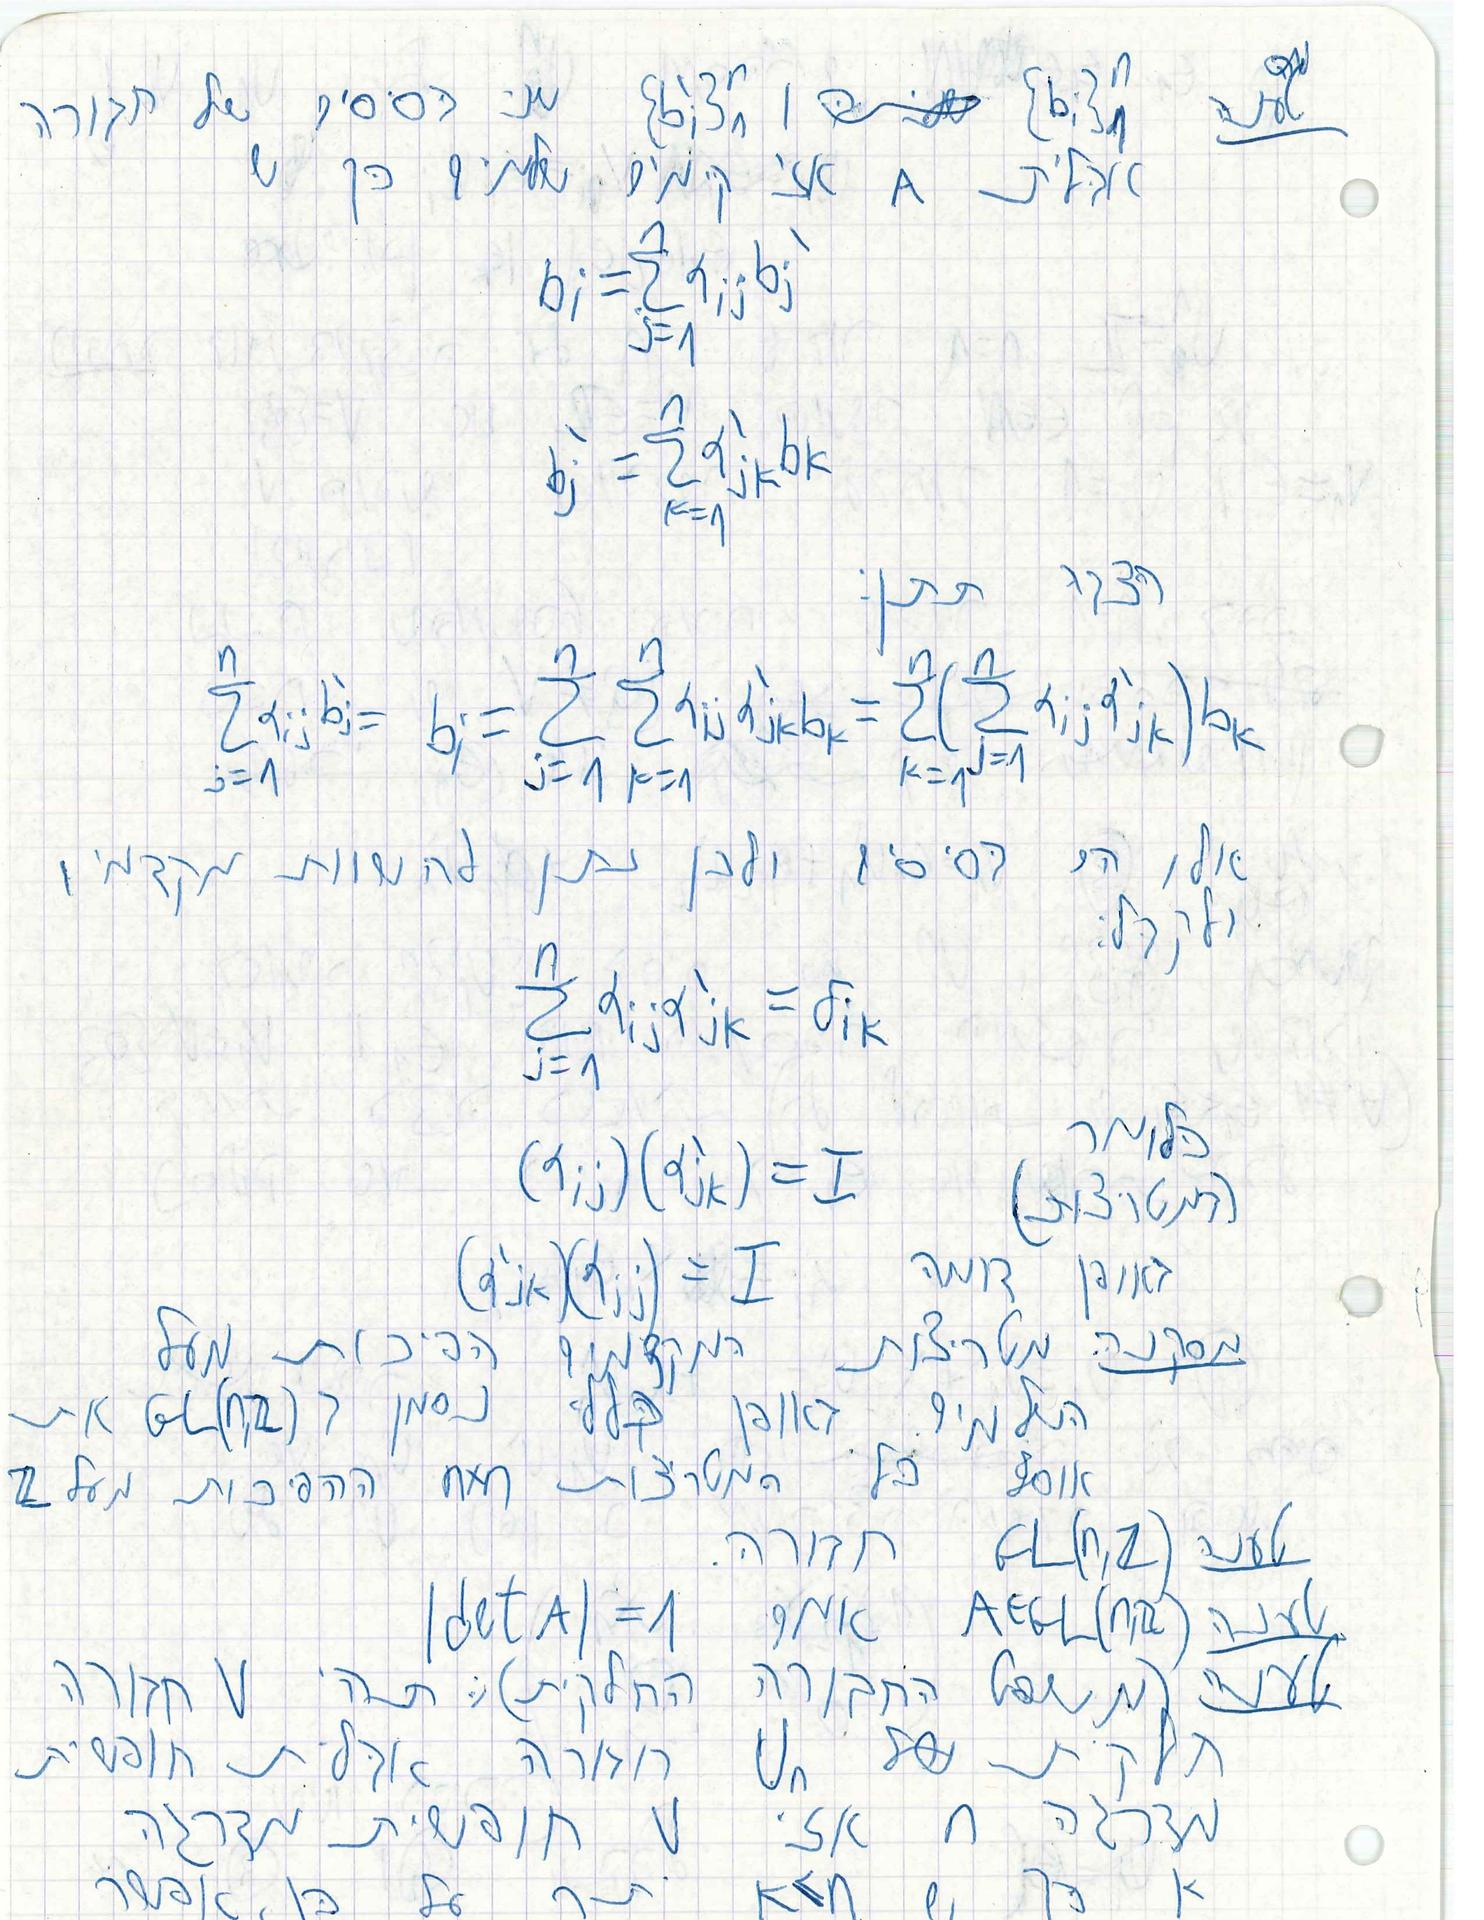 טענה אם {bᵢ}₁ⁿ ו {b'ᵢ}₁ⁿ שני בסיסים של חבורה
אבלית A אזי קימים שלמים כך ש
bᵢ = ∑_{j=1}^{n} αᵢⱼ b'ⱼ
b'ⱼ = ∑_{k=1}^{n} α'ⱼₖ bₖ
הצבה תתן:
∑_{j=1}^{n} αᵢⱼ b'ⱼ = bᵢ = ∑_{j=1}^{n} ∑_{k=1}^{n} αᵢⱼ α'ⱼₖ bₖ = ∑_{k=1}^{n} (∑_{j=1}^{n} αᵢⱼ α'ⱼₖ) bₖ
אלו הם בסיסים ולכן נתן להשוות מקדמים
ולקבל:
∑_{j=1}^{n} αᵢⱼ α'ⱼₖ = δᵢₖ
כלומר
(במטריצות) (αᵢⱼ)(α'ⱼₖ) = I
באופן דומה (α'ⱼₖ)(αᵢⱼ) = I
מסקנה מטריצות המקדמים הפיכות מעל
השלמים. באופן כללי נסמן ב GL(n,ℤ) את
אוסף כל המטריצות n×n ההפיכות מעל ℤ
טענה GL(n,ℤ) חבורה.
טענה A∈GL(n,ℤ) אמ"מ |det A| = 1
טענה (משפט החבורה החלקית): תהי V חבורה
חלקית של Uₙ חבורה אבלית חופשית
מדרגה n אזי V חופשית מדרגה
k כך ש k≤n יתר על כן, אפשר